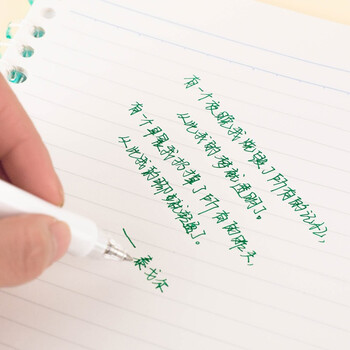 有一个夜晚我烧毁了所有的记忆,
从此我的梦就透明了。
有一个早晨我扔掉了所有的昨天,
从此我的脚步就轻盈了。
— 泰戈尔